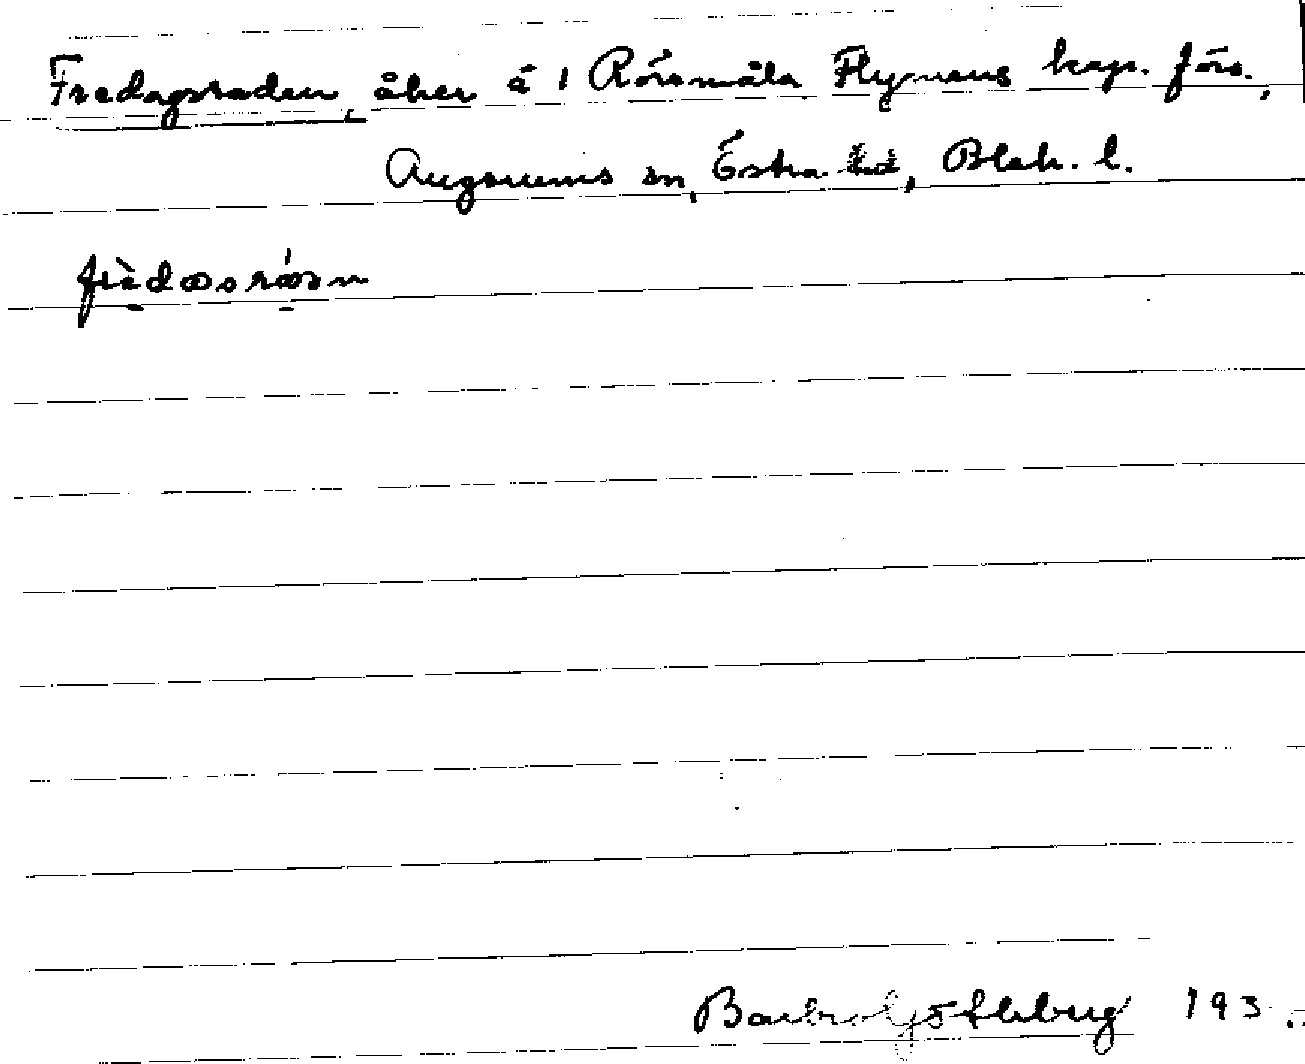 Fredagsraden, åker å 1 Rörsmåla Flymens kap. förs.,
Augerums sn, Östra hd, Blek. l.
Barbro Götleborg 193..